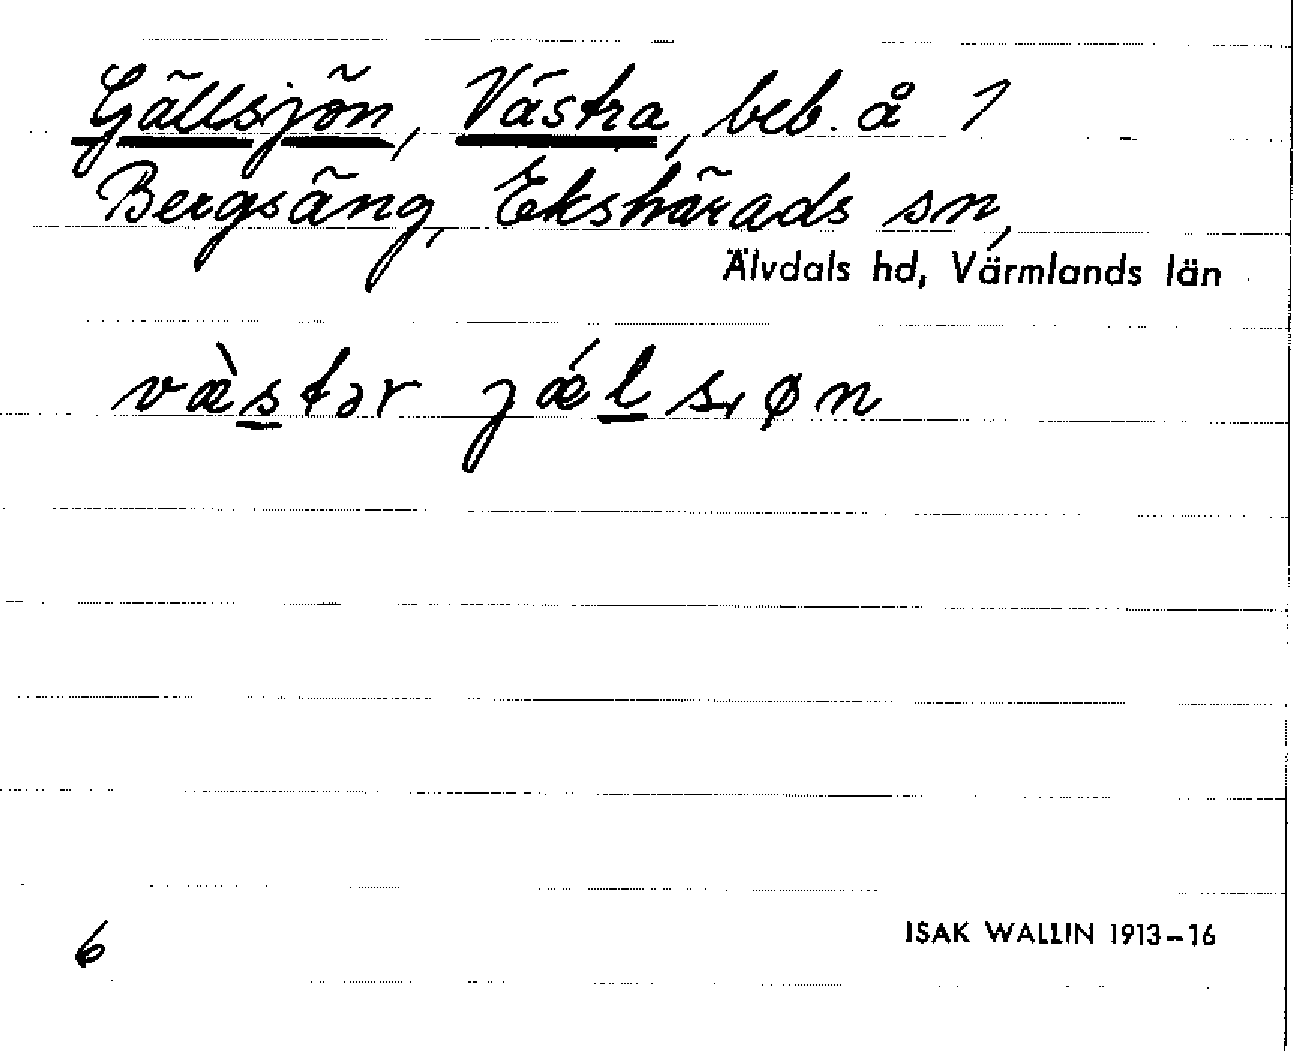 Gällsjön, Västra, beb. å 1
Bergsäng, Ekshärads sn,
Älvdals hd, Värmlands län
væ̀stər jǽlsıøn
6
ISAK WALLIN 1913–16